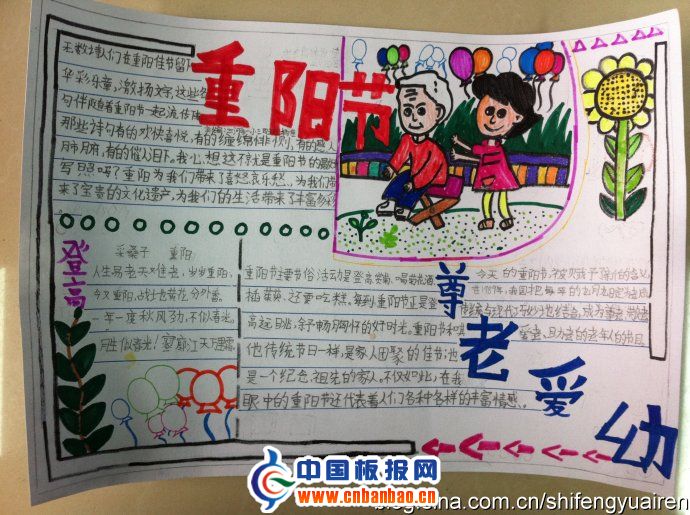 重阳节
无数诗人们在重阳佳节留下
华彩乐章,激扬文字,这些
句伴随着重阳节一起流传
那些诗句有的欢快喜悦,有的缠绵悱恻,有的
有的催人泪下。我心想这不就是重阳节的
写照吗?重阳为我们带来了喜怒哀乐愁、为我们带
来了宝贵的文化遗产,为我们的生活带来了丰富多彩
登高
采桑子 重阳
人生易老天难老,岁岁重阳,
今又重阳,战地黄花,分外香。
一年一度秋风劲,不似春光,
胜似春光,寥廓江天万里霜
重阳节主要节俗活动是登高赏菊、喝菊花酒
插茱萸、还要吃糕。每到重阳节正是登
高远眺、舒畅胸怀的好时光。重阳节和
他传统节日一样,是家人团聚的佳节;也
是一个纪念祖先的家人。不仅如此,在我
眼中的重阳节还代表着人们各种各样的丰富情感。
今天的重阳节,被赋予
尊老爱幼
中国板报网
www.cnbanbao.cn
blog.sina.com.cn/shifengyuairen